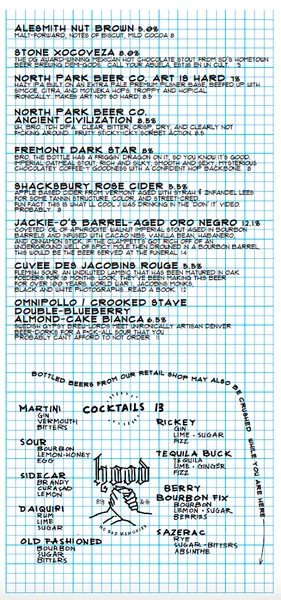 ALESMITH NUT BROWN 5.0%
MALT-FORWARD, NOTES OF BISCUIT, MILD COCOA 8
STONE XOCOVEZA 8.0%
THE OG AWARD-WINNING MEXICAN HOT CHOCOLATE STOUT FROM SD'S HOMETOWN
BEER BREWING DEMI-GODS. CALL YOUR ABUELA, EST IS EN UN CULT. 9
NORTH PARK BEER CO. ART IS HARD 7%
HAZY IPA BUILT ON AN EXTRA PALE PREMIUM PILSNER BASE, BEEFED UP WITH
SIMCOE, CITRA, AND MOTUEKA HOPS. TROPPY AND HOPICAL.
IRONICALLY...MAKES ART NOT SO HARD. 8.5
NORTH PARK BEER CO.
ANCIENT CIVILIZATION 8.5%
UH, BRO...TDH DIPA. CLEAR, BITTER, CRISP, DRY, AND CLEARLY NOT
F*CKING AROUND. FRUITY STICKY-ICKY SORBET ACTION. 8.5
FREMONT DARK STAR 8%
BRO, THE BOTTLE HAS A FRIGGIN' DRAGON ON IT, SO YOU KNOW IT'S GOOD.
IMPERIAL OATMEAL STOUT, RICH AND SILKY, SMOOTH AND SEXY, MYSTERIOUS
CHOCOLATEY COFFEE-Y GOODNESS WITH A CONFIDENT HOP BACKBONE. 8
SHACKSBURY ROSE CIDER 5.5%
APPLE BASED CIDER FROM VERMONT AGED WITH SYRAH & ZINFANDEL LEES
FOR SOME TANNIN STRUCTURE, COLOR, AND STREET-CRED.
FUN FACT: THIS IS WHAT LL COOL J WAS DRINKING IN THE 'DOIN' IT' VIDEO.
PROBABLY. 8
JACKIE-O'S BARREL-AGED ORO NEGRO 12.1%
COVETED OL' OF APHRODITE. WALNUT IMPERIAL STOUT AGED IN BOURBON
BARRELS AND INFUSED WITH CACAO NIBS, VANILLA BEAN, HABANERO,
AND CINNAMON STICK.
UNDERGROUND WELL OF SPICY MOLE THEN DROWNED IN A BOURBON BARREL,
THIS WOULD BE THE BEER SERVED AT THE FUNERAL. 14
CUVEE DES JACOBINS ROUGE 5.5%
FLEMISH SOUR. AN UNDILUTED LAMBIC THAT HAS BEEN MATURED IN OAK
FOEDERS FOR 18 MONTHS. LOOK, THEY'VE BEEN MAKING THIS BEER
FOR OVER 100 YEARS. WORLD WAR I. JACOBINS. MONKS.
BLACK AND WHITE PHOTOGRAPHS. READ A BOOK. 12
OMNIPOLLO / CROOKED STAVE
DOUBLE-BLUEBERRY
ALMOND-CAKE BIANCA 6.5%
SWEDISH GYPSY BREW-LORDS MEET UNIRONICALLY ARTISAN DENVER
BEER-DORKS FOR A F*CK-ALL SOUR THAT YOU
PROBABLY CAN'T AFFORD TO NOT ORDER.
BOTTLED BEERS FROM OUR RETAIL SHOP MAY ALSO BE CRUSHED WHILE YOU ARE HERE
COCKTAILS 13
MARTINI
GIN
VERMOUTH
BITTERS
SOUR
BOURBON
LEMON-HONEY
EGG
SIDECAR
BRANDY
CURACAO
LEMON
DAIQUIRI
RUM
LIME
SUGAR
OLD FASHIONED
BOURBON
SUGAR
BITTERS
hood
NO BAD MEMORIES
RICKEY
GIN
LIME - SUGAR
FIZZ
TEQUILA BUCK
TEQUILA
LIME - GINGER
FIZZ
BERRY
BOURBON FIX
BOURBON
LEMON - SUGAR
BERRIES
SAZERAC
RYE
SUGAR - BITTERS
ABSINTHE